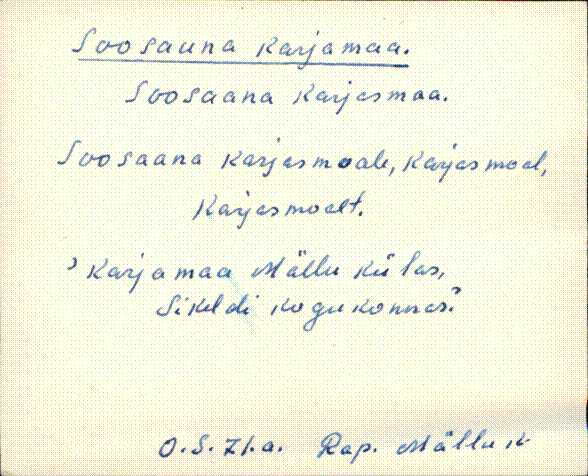 Soosauna karjamaa.
Soosaana karjasmaa.
Soosaana karjasmoale, karjasmoal,
karjasmoalt.
’karjamaa Mällu külas,
Sikeldi kogukonnas.’
O.S. 71.a. Rap. Mällu k